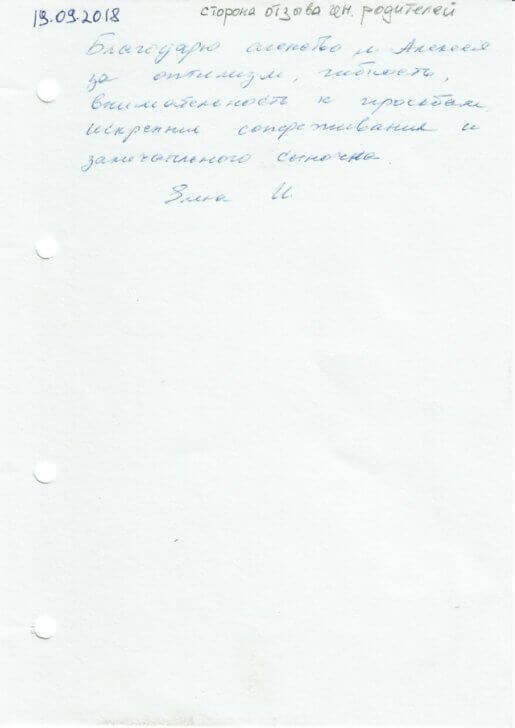 19.09.2018 сторона отзыва ин. родителей
Благодарю агенство и Алексея
за оптимизм, гибкость,
внимательность к просьбам,
искренние сопереживания и
замечательного сыночка.
Элина И.